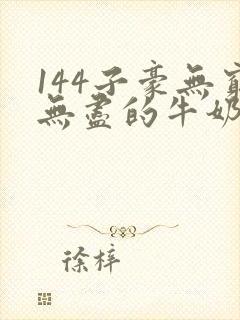 144子豪無窮
無盡的牛奶
徐梓